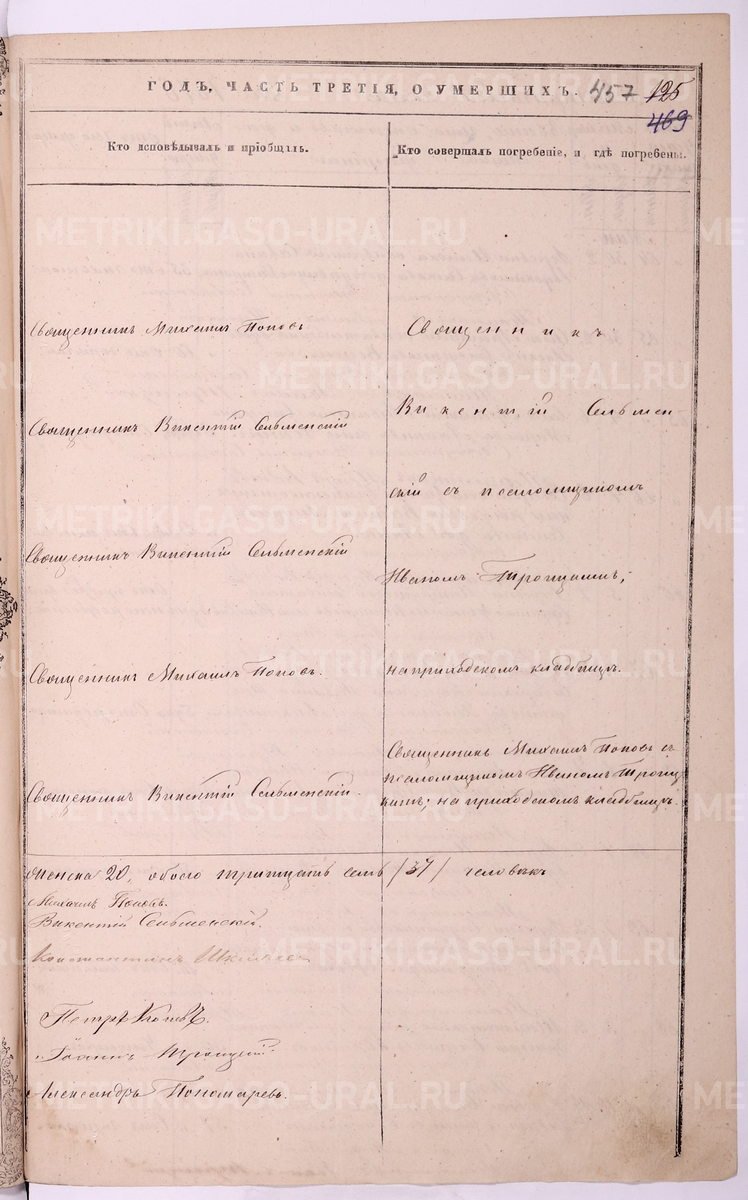 ГОДЪ, ЧАСТЬ ТРЕТІЯ, О УМЕРШИХЪ. 457 125
469
Кто исповѣдывалъ и пріобщалъ.
Кто совершалъ погребеніе, и гдѣ погребены.
Священникъ Михаилъ Поповъ
Священникъ Викентій Сельменскій
Священникъ Викентій Сельменскій
Священникъ Михаилъ Поповъ.
Священникъ Викентій Сельменскій.
Священникъ
Викентій Сельмен-
скій съ псаломщикомъ
Иваномъ
на приходскомъ кладбищѣ.
Священникъ Михаилъ Поповъ съ
псаломщикомъ Иваномъ
на приходскомъ кладбищѣ.
женска 20, обоего тритцать семь /37/ человѣкъ
Михаилъ Поповъ.
Викентій Сельменскій.
Константинъ
Петръ
Іоаннъ Троицкій
Александръ Пономаревъ.
METRIKI.GASO-URAL.RU